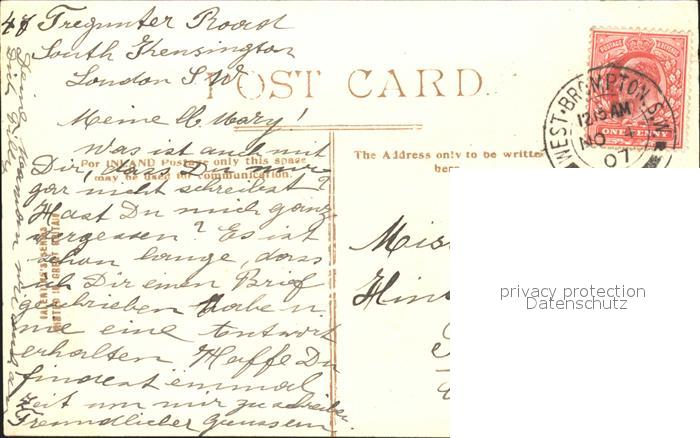 47 Tregunter Road
South Kensington
London S W.
POST CARD.
Meine lb Mary!
Was ist auch mit
Dir, dass Du mir
For INLAND Postage only this space
may be used for communication.
gar nicht schreibst?
Hast Du mich ganz
vergessen? Es ist
schon lange, dass
ich Dir einen Brief
geschrieben habe u.
nie eine Antwort
erhalten. Hoffe Du
findest einmal
Zeit um mir zu schreiben.
Freundlicher
The Address only to be written
here
Miss
Hin
POSTAGE REVENUE
ONE PENNY
WEST-BROMPTON. S.W.
12.15 AM
NO
07
VALENTINE'S SERIES
PRINTED IN GREAT BRITAIN
privacy protection
Datenschutz